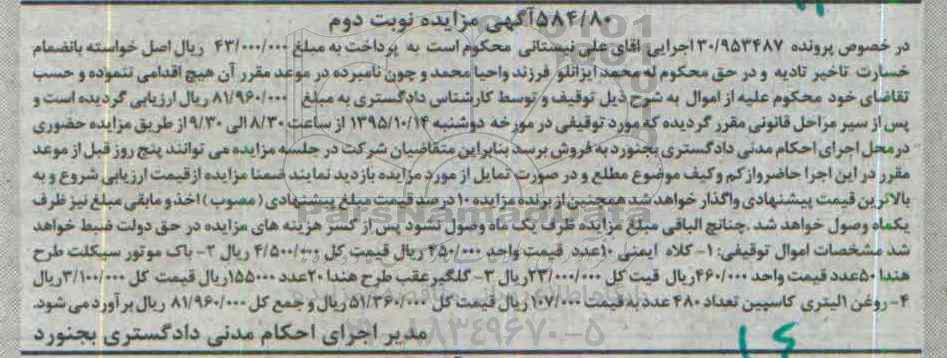 ۵۸۴/۸۰آگهی مزایده نوبت دوم
در خصوص پرونده ۳۰/۹۵۳۴۸۷ اجرایی اقای علی نیستانی محکوم است به پرداخت به مبلغ ۴۳/۰۰۰/۰۰۰ ریال اصل خواسته بانضمام
خسارت تاخیر تادیه و در حق محکوم له محمد ایزانلو فرزند واحیا محمد و چون نامبرده در موعد مقرر آن هیچ اقدامی ننموده و حسب
تقاضای خود محکوم علیه از اموال به شرح ذیل توقیف و توسط کارشناس دادگستری به مبلغ ۸۱/۹۶۰/۰۰۰ ریال ارزیابی گردیده است و
پس از سیر مراحل قانونی مقرر گردیده که مورد توقیفی در مورخه دوشنبه ۱۳۹۵/۱۰/۱۴ از ساعت ۸/۳۰ الی ۹/۳۰ از طریق مزایده حضوری
در محل اجرای احکام مدنی دادگستری بجنورد به فروش برسد بنابراین متقاضیان شرکت در جلسه مزایده می توانند پنج روز قبل از موعد
مقرر در این اجرا حاضر و از کم و کیف موضوع مطلع و در صورت تمایل از مورد مزایده بازدید نمایند ضمنا مزایده از قیمت ارزیابی شروع و به
بالاترین قیمت پیشنهادی واگذار خواهد شد همچنین از برنده مزایده ۱۰ درصد قیمت مبلغ پیشنهادی ( مصوب ) اخذ و مابقی مبلغ نیز ظرف
یکماه وصول خواهد شد .چنانچ الباقی مبلغ مزایده ظرف یک ماه وصول نشود پس از کسر هزینه های مزایده در حق دولت ضبط خواهد
شد مشخصات اموال توقیفی: ۱- کلاه ایمنی ۱۰عدد قیمت واحد ۴۵۰/۰۰۰ ریال قیمت کل ۴/۵۰۰/۰۰۰ ریال ۲- باک موتور سیکلت طرح
هندا ۵۰عدد قیمت واحد ۴۶۰/۰۰۰ریال قیت کل ۲۳/۰۰۰/۰۰۰ریال ۳- گلگیر عقب طرح هندا ۲۰عدد ۱۵۵۰۰۰ریال قیمت کل ۳/۱۰۰/۰۰۰ریال
۴- روغن ۱لیتری کاسپین تعداد ۴۸۰ عدد به قیمت ۱۰۷/۰۰۰ ریال قیمت کل ۵۱/۳۶۰/۰۰۰ریال و جمع کل ۸۱/۹۶۰/۰۰۰ ریال برآورد می شود.
مدیر اجرای احکام مدنی دادگستری بجنورد
ParsNamadData